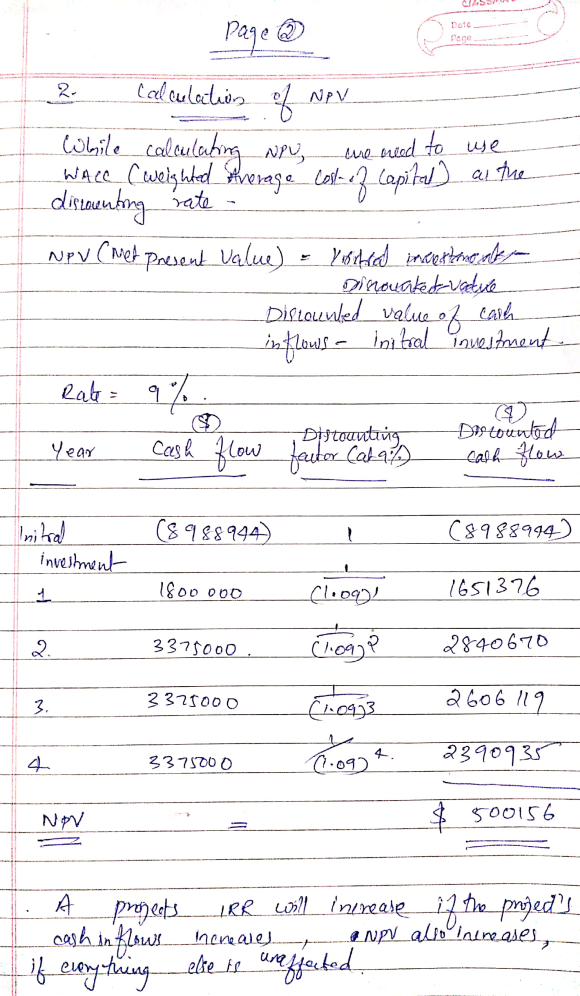 CLASSMATE
Date
Page
Page 2
2. Calculation of NPV
While calculating NPV, we need to use
WACC (weighted Average Cost of Capital) as the
discounting rate -
NPV (Net Present Value) =
Discounted value
Discounted value of cash
inflows - initial investment.
Rate = 9%.
Year Cash flow ($) Discounting factor (at 9%) Discounted cash flow ($)
Initial investment (8988944) 1 (8988944)
1 1800 000 1/(1.09)1 1651376
2. 3375000. 1/(1.09)2 2840670
3. 3375000 1/(1.09)3 2606119
4 3375000 1/(1.09)4. 2390935
NPV = $ 500156
. A projects IRR will increase if the project's
cash inflows increases, NPV also increases,
if everything else is unaffected.